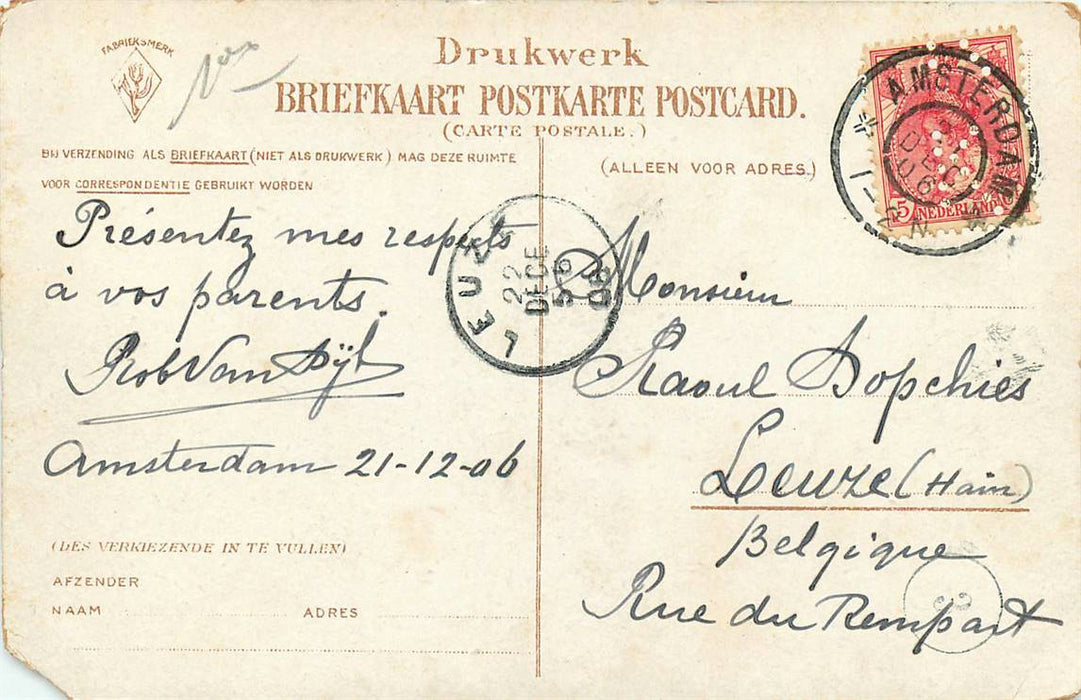 FABRIEKSMERK
Drukwerk
BRIEFKAART POSTKARTE POSTCARD.
(CARTE POSTALE.)
BIJ VERZENDING ALS BRIEFKAART (NIET ALS DRUKWERK) MAG DEZE RUIMTE
VOOR CORRESPONDENTIE GEBRUIKT WORDEN
(ALLEEN VOOR ADRES.)
AMSTERDAM
DEC
06
5 NEDERLAND
LEUZE
22
DECE
06
Présentez mes respects
à vos parents.
Rob Van Dijl
Amsterdam 21-12-06
Monsieur
Raoul Dopchies
Leuze (Hain)
Belgique
Rue du Rempart
(DES VERKIEZENDE IN TE VULLEN)
AFZENDER
NAAM ADRES